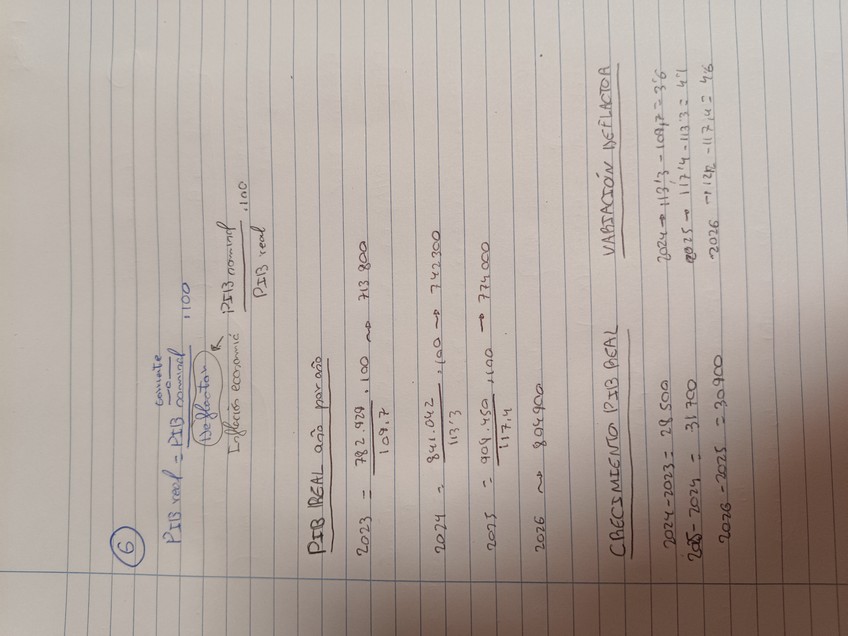 6
PIB real = PIB nominal . 100
corriente
Deflactor
Inflación economía
PIB nominal . 100
PIB real
PIB REAL año por año
2023 = 782.929 . 100 → 713 800
109,7
2024 = 841.042 . 100 → 742300
113'3
2025 = 909.450 . 100 → 774000
117,4
2026 → 804900
CRECIMIENTO PIB REAL
2024-2023 = 28 500
2025-2024 = 31 700
2026-2025 = 30900
VARIACIÓN DEFLACTOR
2024 → 113'3 - 109,7 = 3'6
2025 → 117'4 - 113'3 = 4'1
2026 → 122 - 117,4 = 4'6